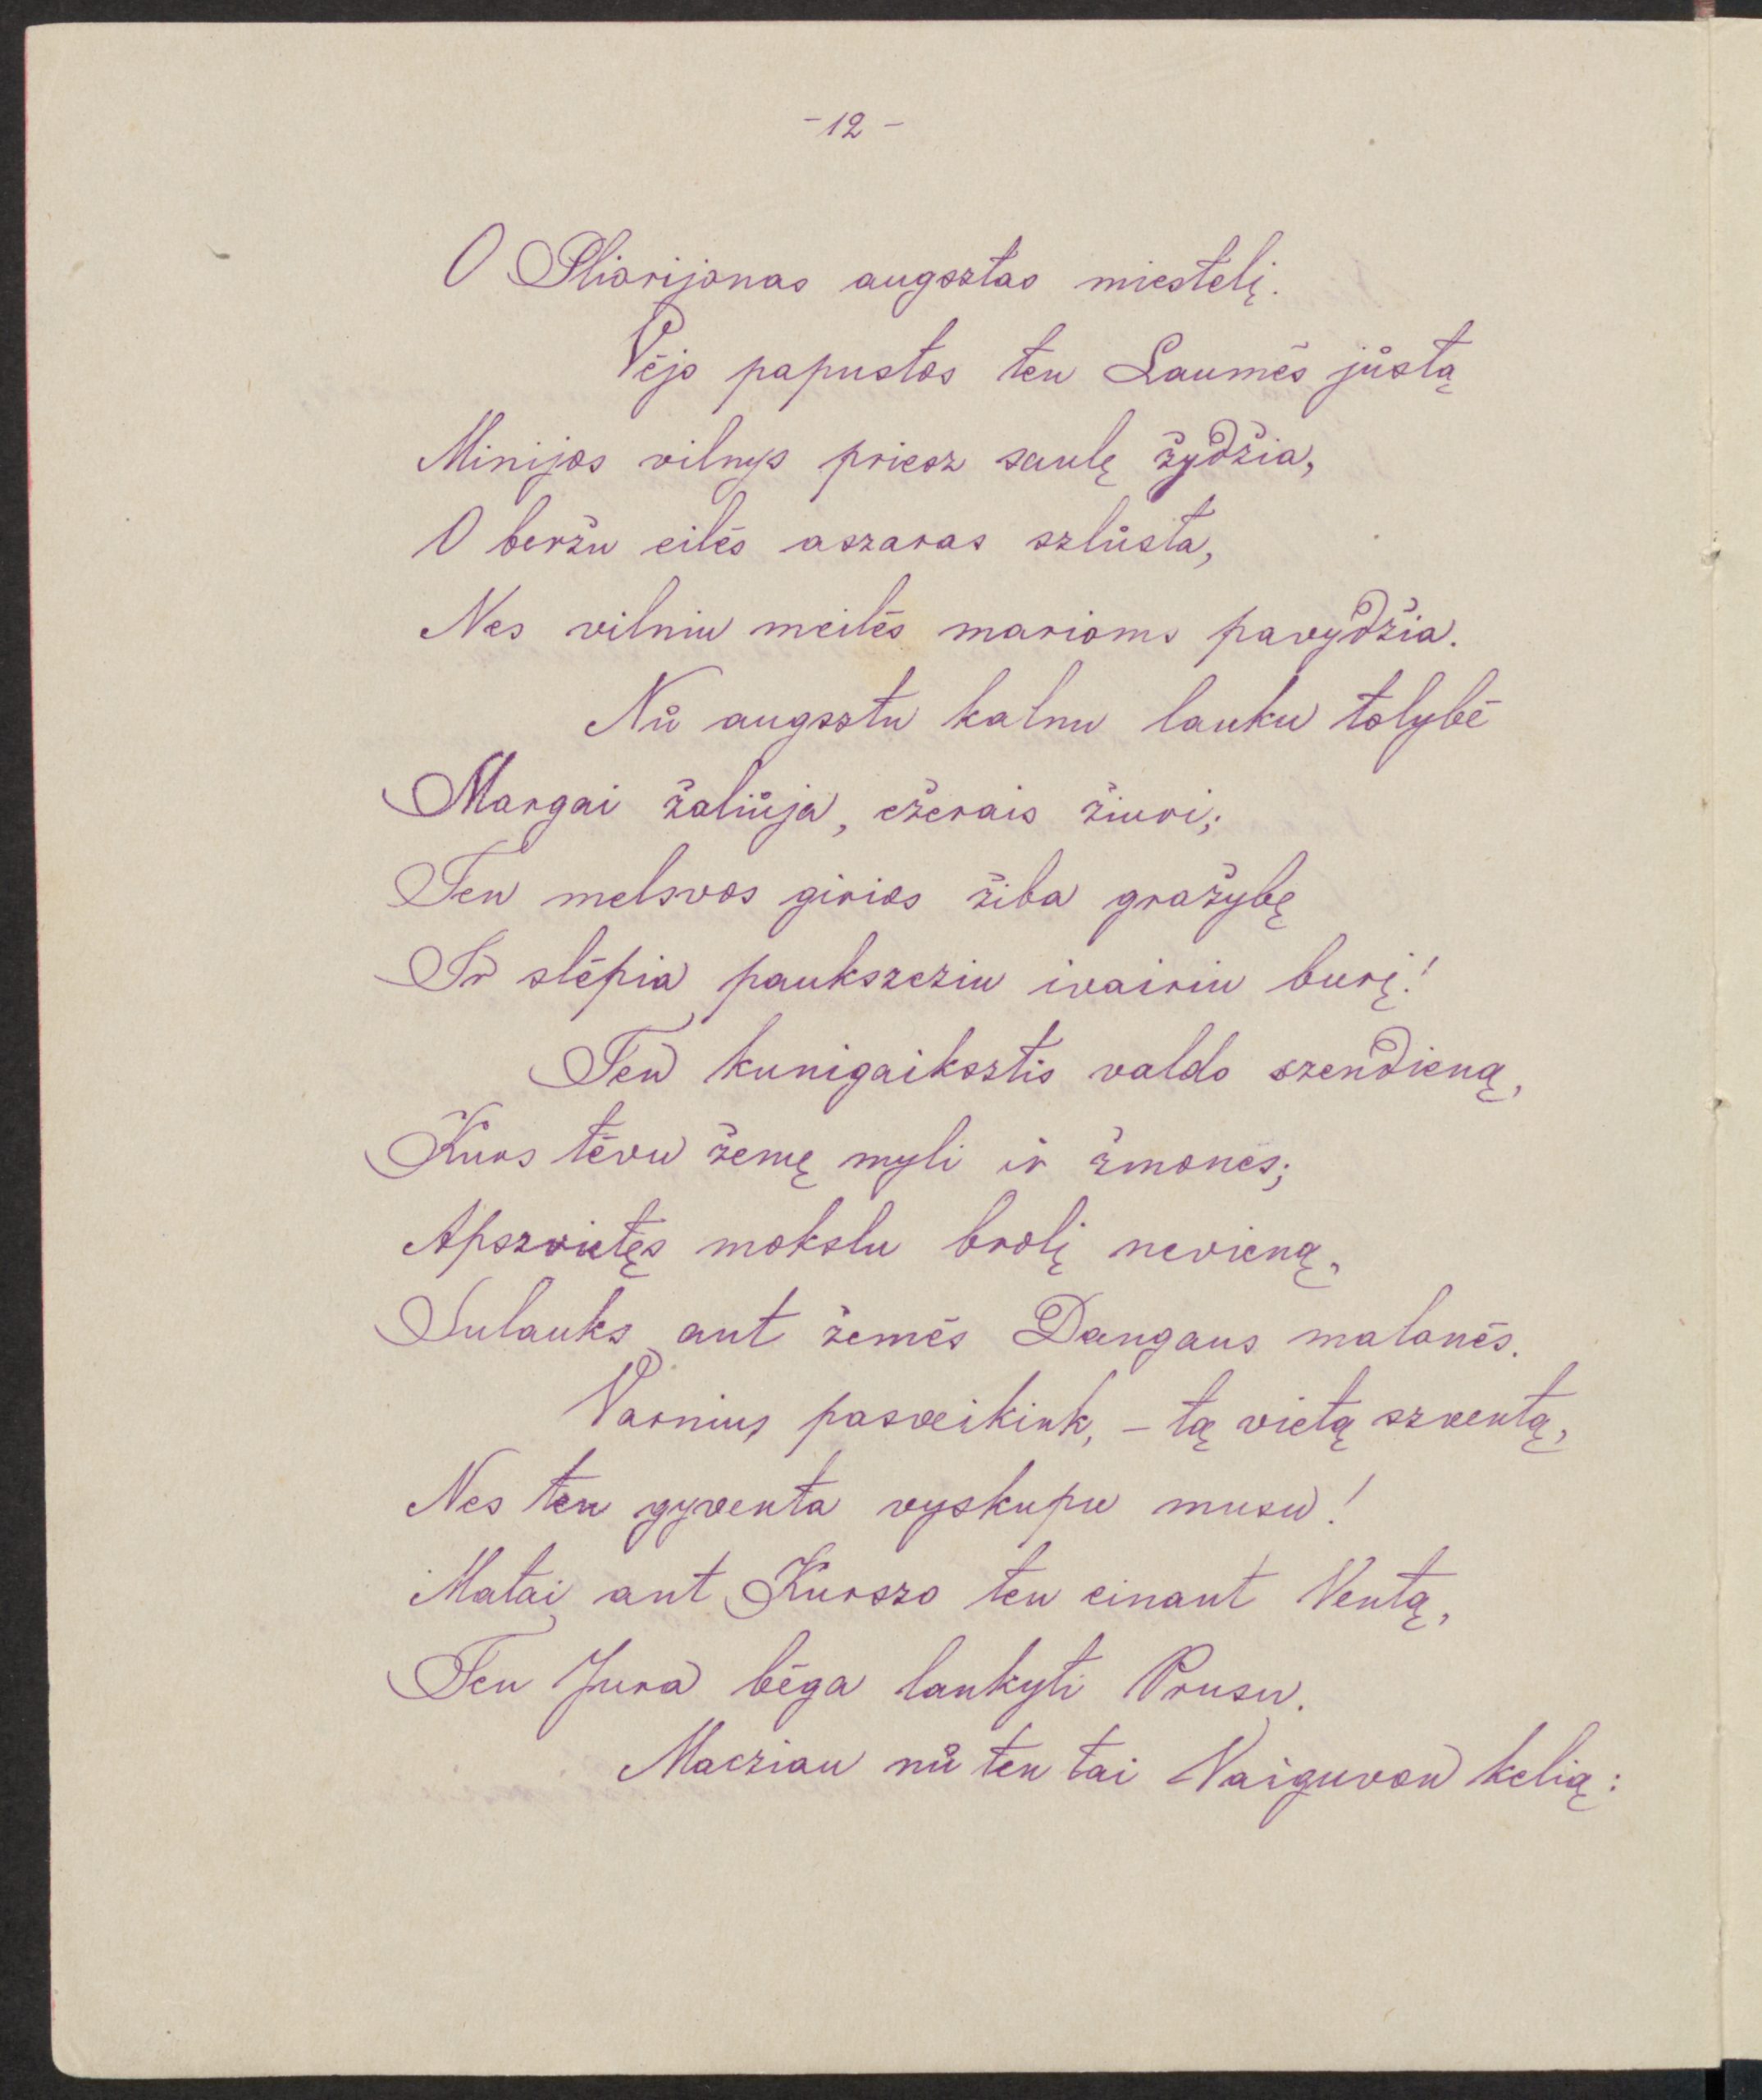 - 12 -
O Pliarijonas augsztas miestelį.
Vėjo papustos ten Laumės jůstą
Minijos vilnys priesz saulę żydżia,
O berżu eilės aszaras szlůsta,
Nes vilniu meilės marioms pavydżia.
Nů augsztu kalnu lauku tolybė
Margai żaliůja, eżerais żiuri;
Ten melsvos girios żiba grażybę
Ir slėpia paukszcziu ivairiu burį!
Ten kunigaiksztis valdo szendieną,
Kurs tėvu żemę myli ir żmones;
Apszvietęs mokslu brolį nevieną,
Sulauks ant żemės Dangaus malonės.
Varnius pasveikink, – tą vietą szventą,
Nes ten gyventa vyskupu musu!
Matai ant Kurszo ten einant Ventą,
Ten Jura bėga lankyti Prusu.
Macziau nů ten tai Vaiguvon kelią: